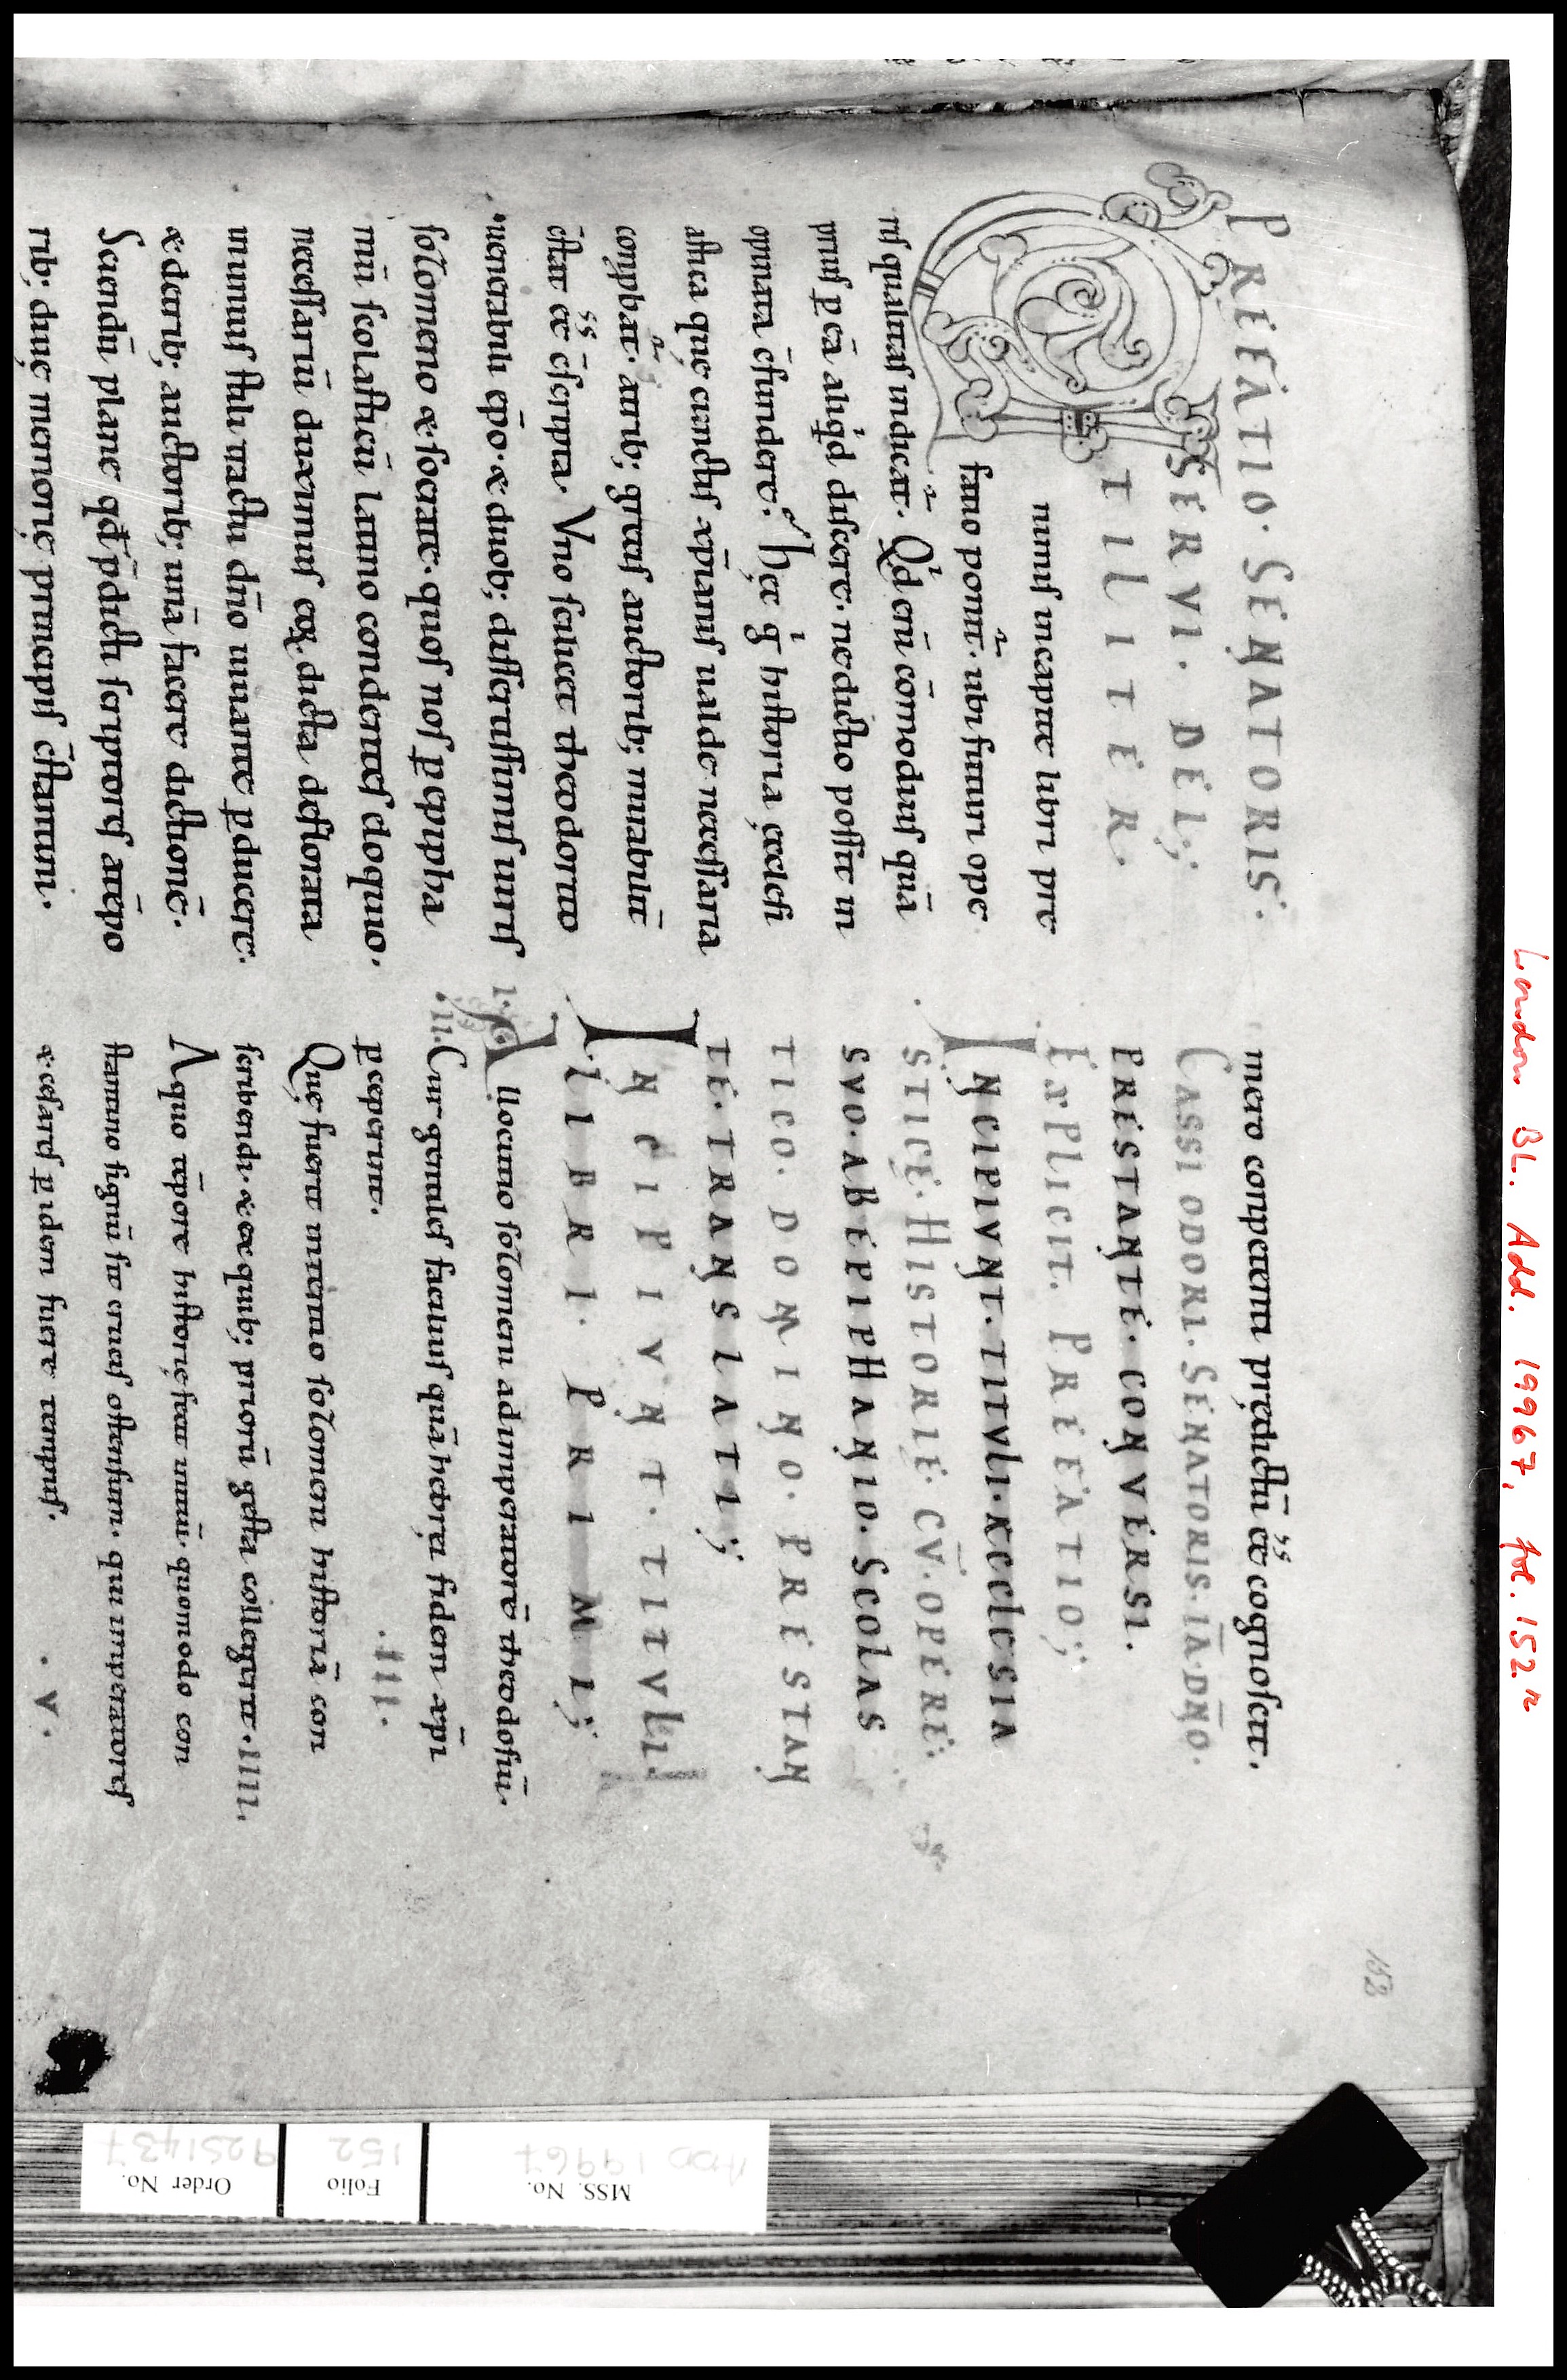 PREFATIO. SENATORIS.
SERVI. DEI;
VTILITER
nimis incapite libri pre
sente ponit. ubi futuri ope
ris qualitas indicat. Qd eni cōmodius quā
prius p cā aliqd discere. ne dictio possit in
opinata c̄fundere. Hec g historia eccłesi
astica quę cunctis xp̄ianis ualde necessaria
conpbat. a trib; grecis auctorib; mirabilit̄
c̄stat ēē c̄scripta. Vno scilicet theodorito
uenerabili ep̄o. & duob; dissertissimis uiris
sozomeno & socrate. quos nos p epipha
niū scolasticū latino condentes eloquio.
necessariū duximus eoꝝ dicta deflorata
in unius stili tractū dn̄o iuuante pducere.
& de trib; auctorib; unā facere dictionē.
Sciendū plane qd p̄dicti scriptores a tēpo
rib; diuę memorię principis c̄stantini.
mero conpetenti prędictū ēē cognoscet.
CASSIODORI. SENATORIS. IĀ. DN̄O.
PRESTANTE. CONVERSI.
EXPLICIT. PREFATIO;
INCIPIVNT. TITVLI. ECCLESIA
STICE. HISTORIE. CV̄. OPERE.
SVO. AB EPIPHANIO. SCOLAS
TICO. DOMINO. PRESTAN
TE. TRANSLATI;
INCIPIVNT. TITVLI.
LIBRI. PRIMI;
I. Allocutio sozomeni ad imperatorē theodosiū.
.II. Cur gentiles facilius quā hebrei fidem xp̄i
pceperint. .III.
Que fuerit intentio sozomeni historiā con
scribendi. & ex quib; priorū gesta collegit. IIII.
A quo tēpore historię fiat initiū. quomodo con
stantino signū sit crucis ostensum. qui imperatores
& cesares p idem fuere tempus. .V.
152
London BL. Add. 19967, fol. 152r
MSS. No.
ADD 19967
Folio
152
Order No.
9251437